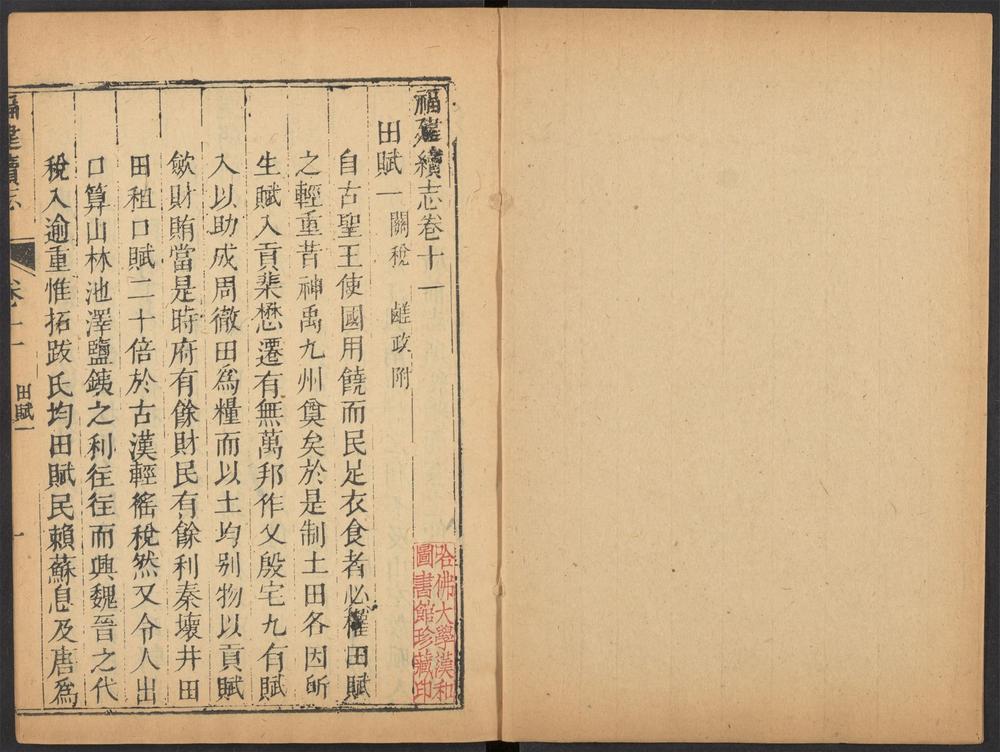 福建續志卷十一
田賦一 關稅 鹺政附
自古聖王使國用饒而民足衣食者必權田賦
之輕重昔神禹九州奠矣於是制土田各因所
生賦入貢棐懋遷有無萬邦作乂殷宅九有賦
入以助成周徹田爲糧而以土均别物以貢賦
歛財賄當是時府有餘財民有餘利秦壞井田
田租口賦二十倍於古漢輕徭稅然又令人出
口算山林池澤鹽鐵之利往往而興魏晉之代
稅入逾重惟拓跋氏均田賦民賴蘇息及唐爲
福建續志
卷十一
田賦一
一
哈佛大學漢和
圖書館珍藏印